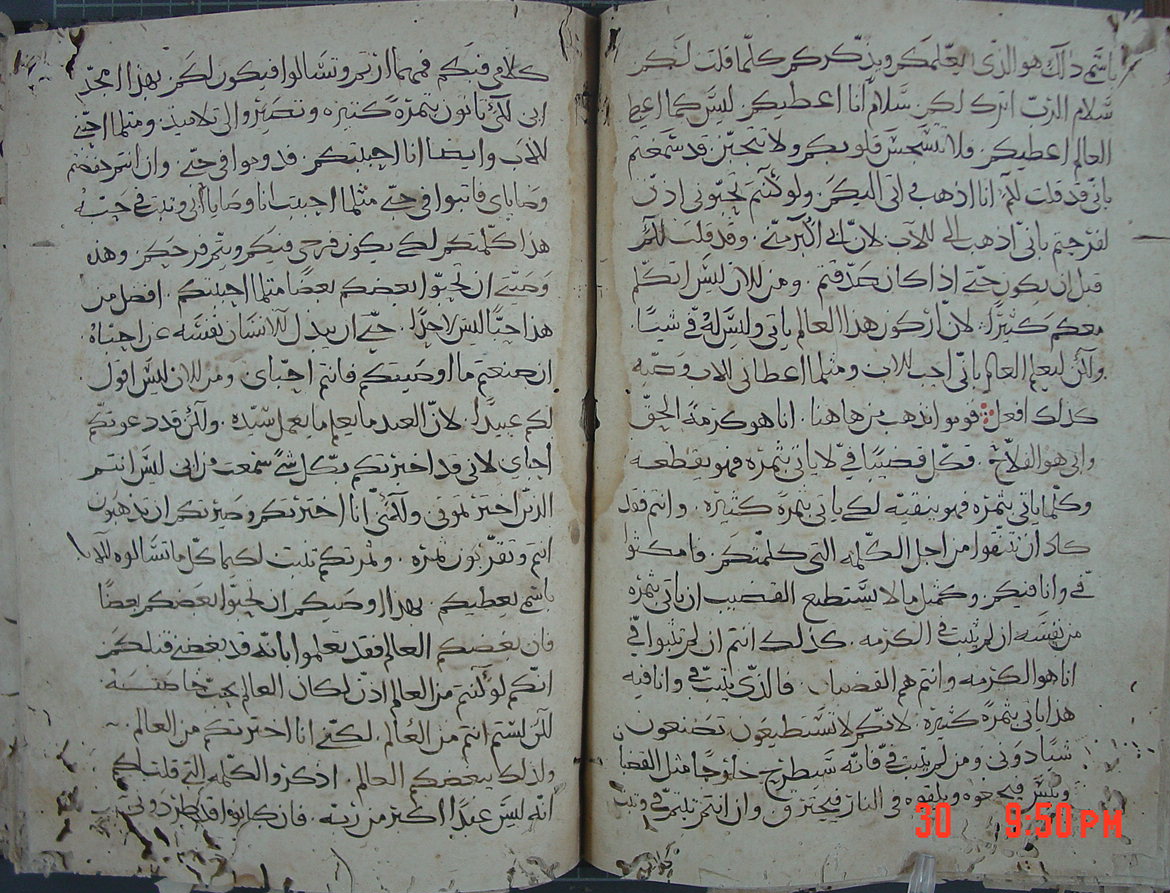 باسمي ذالك هو الذي يعلمكم ويذكركم كلما قلت لكم
سلام الذي اترك لكم سلام انا اعطيكم ليس كما اعطي
العالم اعطيكم فلا تستحس قلوبكم ولا تتحير قد سمعتم
باني قد قلت لكم انا اذهب ثم اتي اليكم ولو كنتم تحبوني اذن
لفرحتم باني اذهب الى الاب لان ابي اكبر مني وقد قلت لكم
قبل ان يكون حتى اذا كان صدقتم ومن الان ليس اتكلم
معكم كثيرا لان اركون هذا العالم ياتي وليس له في شيا
ولكن ليعلم العالم باني احب الاب ومثلما اعطاني الاب وصيه
كذلك افعل قوموا نذهب من هاهنا انا هو كرمة الحق
وابي هو الفلاح فكل قضيبا في لا ياتي بثمره فهو يقطعه
وكلما ياتي بثمره فهو ينقيه لكي ياتي بثمرة كثيره وانتم فقد
كاد ان تنقوا من اجل الكلمه التي كلمتكم فامكثوا
في وانا فيكم وكمثل ما لا يستطيع القضيب ان ياتي بثمره
من نفسه ان لم يثبت في الكرمه كذلك انتم ان لم تثبتوا في
انا هو الكرمه وانتم هم القضبان فالذي يثبت في وانا فيه
هذا ياتي بثمرة كثيره لانكم لا تستطيعون تصنعون
شيا دوني ومن لم يثبت في فانه سيطرح خارجا مثل القضبا
ويلقوه في النار فيحترق وان انتم ثبتم في وثبت
كلامي فيكم فمهما اردتم وتسالوا فيكون لكم بهذا امجد
ابي لكي تاتون بثمرة كثيره وتصيروا لي تلاميذ ومثلما احبني
الاب وايضا انا احببتكم فدوموا في حبي وان انتم حفظتم
وصاياي فاثبتوا في حبي مثلما احببت انا وصايا ابي وثبت في حبه
هذا كلمتكم لكي يكون فرحي فيكم ويتم فرحكم وهذه
وصيتي ان تحبوا بعضكم بعضا مثلما احببتكم افضل من
هذا حبا ليس لاحدا حتى ان يبذل الانسان نفسه عن احباه
ان صنعتم ما اوصيتكم فانتم احباي ومن الان ليس اقول
لكم عبيدا لان العبد ما يعلم ما يعمل سيده ولكن قد دعوتكم
احباي لاني قد اخبرتكم بكل شي سمعت من ابي ليس انتم
الذين اخترتموني ولكنني انا اخترتكم وصيرتكم ان تذهبون
انتم وتقربون ثمره وثمرتكم تثبت لكيما كل ما تسالوه للاب
باسمي يعطيكم بهذا اوصيكم ان تحبوا بعضكم بعضا
فان يبغضكم العالم فقد تعلموا بانه قد بغضني قبلكم
انكم لو كنتم من العالم اذن لكان العالم يحب خاصته
لكن لستم انتم من العالم لكني انا اخترتكم من العالم
ولذلك يبغضكم العالم اذكروا الكلمه التي قلت لكم
انه ليس عبدا اكبر من ربه فان كانوا قد طردوني